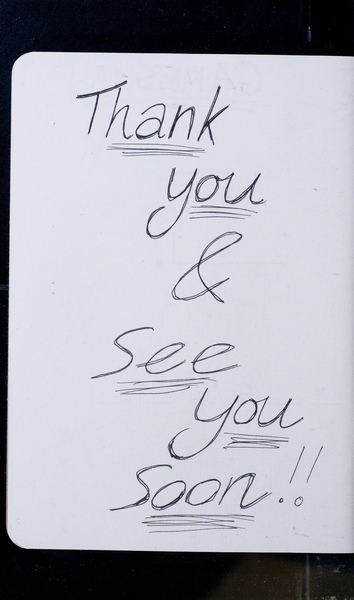 Thank
you
&
See
you
soon.!!